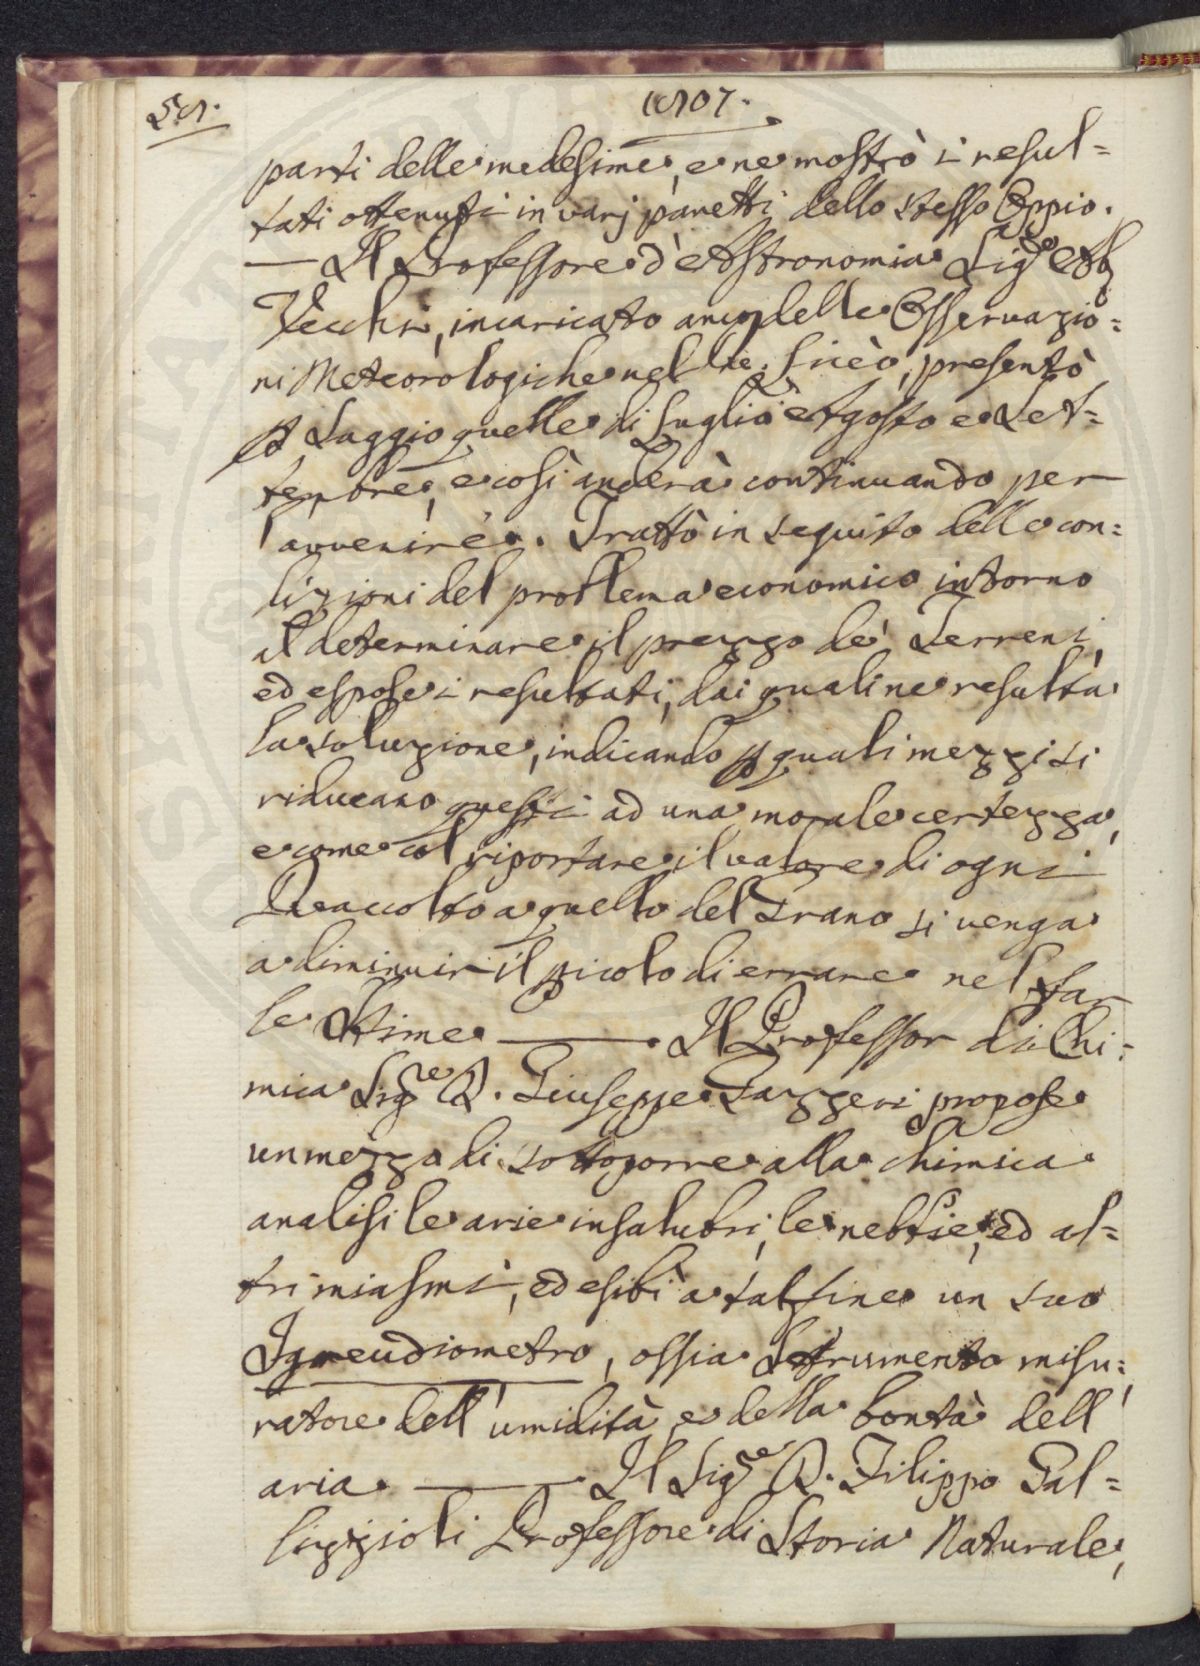 58.
1807.
parti delle medesime, e ne mostrò i resul=
tati ottenuti in varj panetti dello stesso Oppio.
— Il Professore d'Astronomia Sig.e Ab
Vecchi, incaricato anco delle Osservazio=
ni Meteorologiche nel Re. Liceo, presentò
p Saggio quelle di Luglio Agosto e Set=
tembre, e così anderà continuando per
l'avvenire. Trattò in seguito delle con=
dizioni del problema economico intorno
al determinare il prezzo de' Terreni,
ed espose i resultati, dai quali ne resulta
la soluzione, indicando p quali mezzi si
riducano questi ad una morale certezza,
e come col riportare il valore di ogni
Raccolto a quello del Grano si venga
a diminuir il picolo di errare nel far
le stime — . Il Professor di Chi=
mica Sig.re D. Giuseppe Gazzeri propose
un mezzo di sottoporre alla chimica
analisi le arie insalubri, le nebbie, ed al=
tri miasmi, ed esibì a tal fine un suo
Igreudiometro, ossia Istrumento misu=
ratore dell'umidità e della bontà dell'
aria. — Il Sig.re D. Filippo Gal=
lizzioli Professore di Storia Naturale,